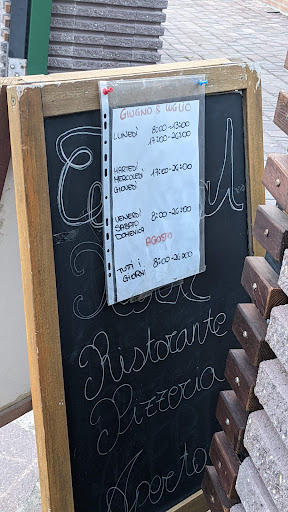 GIUGNO & LUGLIO
LUNEDÌ 8:00-13:00
17:00-24:00
MARTEDÌ
MERCOLEDÌ 17:00-24:00
GIOVEDÌ
VENERDÌ
SABATO 8:00-24:00
DOMENICA
AGOSTO
TUTTI I
GIORNI 8:00-24:00
Ristorante
Pizzeria
Aperto